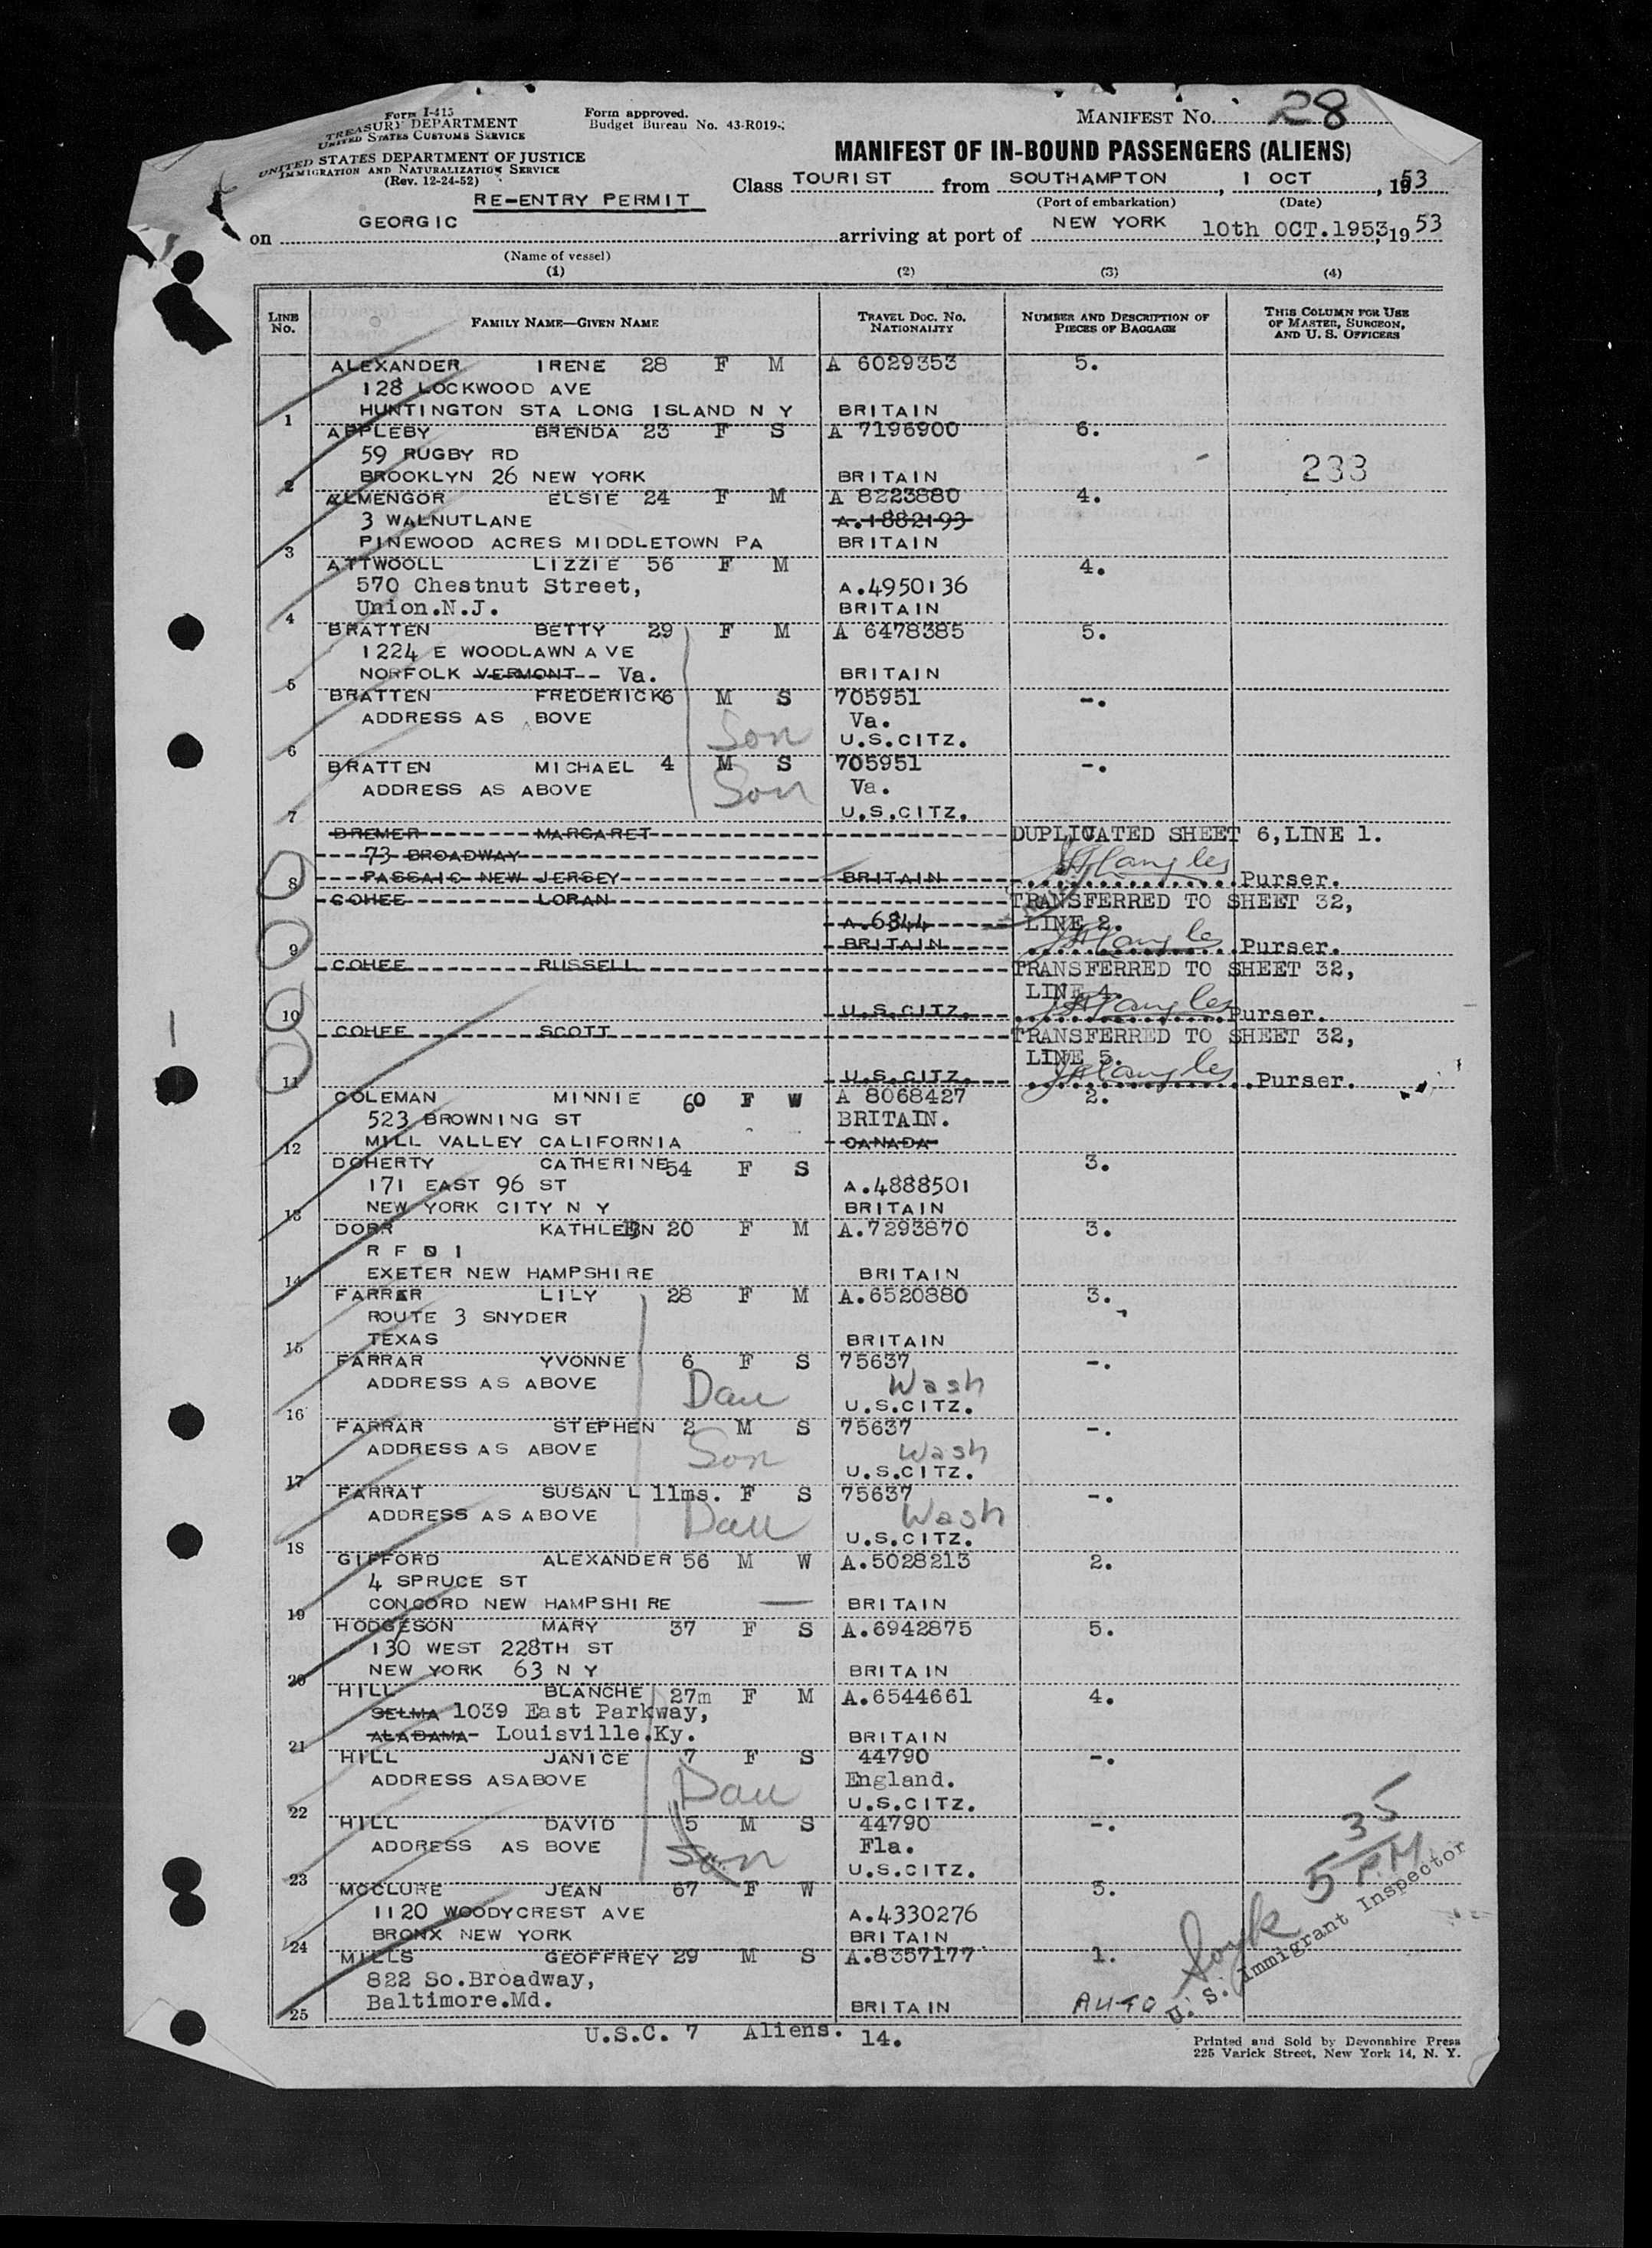 Form I-415
TREASURY DEPARTMENT
UNITED STATES CUSTOMS SERVICE
UNITED STATES DEPARTMENT OF JUSTICE
IMMIGRATION AND NATURALIZATION SERVICE
(Rev. 12-24-52)
Form approved.
Budget Bureau No. 43-R019-
MANIFEST No. 28
MANIFEST OF IN-BOUND PASSENGERS (ALIENS)
Class TOURIST from SOUTHAMPTON, 1 OCT, 1953
(Port of embarkation) (Date)
RE-ENTRY PERMIT
on GEORGIC arriving at port of NEW YORK 10th OCT.1953, 19 53
(Name of vessel)
(1) (2) (3) (4)
LINE No. FAMILY NAME—GIVEN NAME TRAVEL DOC. No. NATIONALITY NUMBER AND DESCRIPTION OF PIECES OF BAGGAGE THIS COLUMN FOR USE OF MASTER, SURGEON, AND U. S. OFFICERS
ALEXANDER IRENE 28 F M A 6029353 5.
128 LOCKWOOD AVE
1 HUNTINGTON STA LONG ISLAND N Y BRITAIN
APPLEBY BRENDA 23 F S A 7196900 6.
59 RUGBY RD
2 BROOKLYN 26 NEW YORK BRITAIN 233
ALMENGOR ELSIE 24 F M A 8223880 4.
3 WALNUTLANE A.1882193
3 PINEWOOD ACRES MIDDLETOWN PA BRITAIN
ATTWOOLL LIZZIE 56 F M 4.
570 Chestnut Street, A.4950136
4 Union.N.J. BRITAIN
BRATTEN BETTY 29 F M A 6478385 5.
1224 E WOODLAWN AVE
5 NORFOLK VERMONT-- Va. BRITAIN
BRATTEN FREDERICK6 M S 705951 -.
ADDRESS AS BOVE Va.
6 Son U.S.CITZ.
BRATTEN MICHAEL 4 M S 705951 -.
ADDRESS AS ABOVE Son Va.
7 U.S.CITZ.
BREMER MARGARET DUPLICATED SHEET 6,LINE 1.
73 BROADWAY
8 PASSAIC NEW JERSEY BRITAIN Purser.
COHEE LORAN TRANSFERRED TO SHEET 32,
A.6844 LINE 2.
9 BRITAIN Purser.
COHEE RUSSELL TRANSFERRED TO SHEET 32,
LINE 4.
10 U.S.CITZ. Purser.
COHEE SCOTT TRANSFERRED TO SHEET 32,
LINE 5.
11 U.S.CITZ. Purser.
COLEMAN MINNIE 60 F W A 8068427 2.
523 BROWNING ST BRITAIN.
12 MILL VALLEY CALIFORNIA CANADA
DOHERTY CATHERINE54 F S 3.
171 EAST 96 ST A.4888501
13 NEW YORK CITY N Y BRITAIN
DORR KATHLEEN 20 F M A.7293870 3.
R F D 1
14 EXETER NEW HAMPSHIRE BRITAIN
FARRER LILY 28 F M A.6520880 3.
ROUTE 3 SNYDER
15 TEXAS BRITAIN
FARRAR YVONNE 6 F S 75637 -.
ADDRESS AS ABOVE Dau Wash
16 U.S.CITZ.
FARRAR STEPHEN 2 M S 75637 -.
ADDRESS AS ABOVE Son Wash
17 U.S.CITZ.
FARRAT SUSAN L 11ms. F S 75637 -.
ADDRESS AS ABOVE Dau Wash
18 U.S.CITZ.
GIFFORD ALEXANDER 56 M W A.5028213 2.
4 SPRUCE ST
19 CONCORD NEW HAMPSHIRE BRITAIN
HODGESON MARY 37 F S A.6942875 5.
130 WEST 228TH ST
20 NEW YORK 63 N Y BRITAIN
HILL BLANCHE 27m F M A.6544661 4.
SELMA 1039 East Parkway,
21 ALABAMA- Louisville.Ky. BRITAIN
HILL JANICE 7 F S 44790 -.
ADDRESS ASABOVE Dau England.
22 U.S.CITZ.
HILL DAVID 5 M S 44790 -.
ADDRESS AS BOVE Son Fla.
23 U.S.CITZ.
MCCLURE JEAN 67 F W 5.
1120 WOODYCREST AVE A.4330276
24 BRONX NEW YORK BRITAIN
MILLS GEOFFREY 29 M S A.8357177 1.
822 So.Broadway,
25 Baltimore.Md. BRITAIN AUTO
5 35 P.M.
U. S. Immigrant Inspector
U.S.C. 7 Aliens. 14.
Printed and Sold by Devonshire Press
225 Varick Street, New York 14, N. Y.